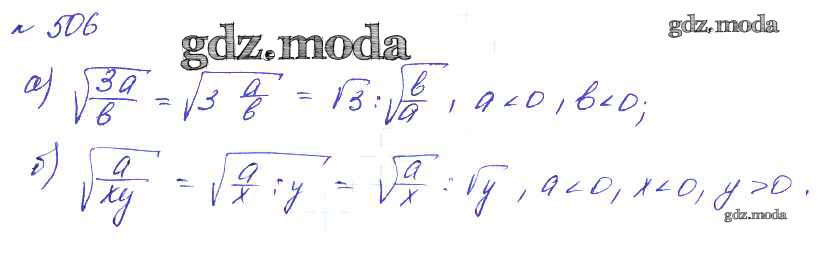 № 506
gdz.moda
gdz.moda
а) √(3a/b) = √(3 a/b) = √3 : √(b/a), a<0, b<0;
б) √(a/xy) = √(a/x : y) = √(a/x) : √y, a<0, x<0, y>0.
gdz.moda